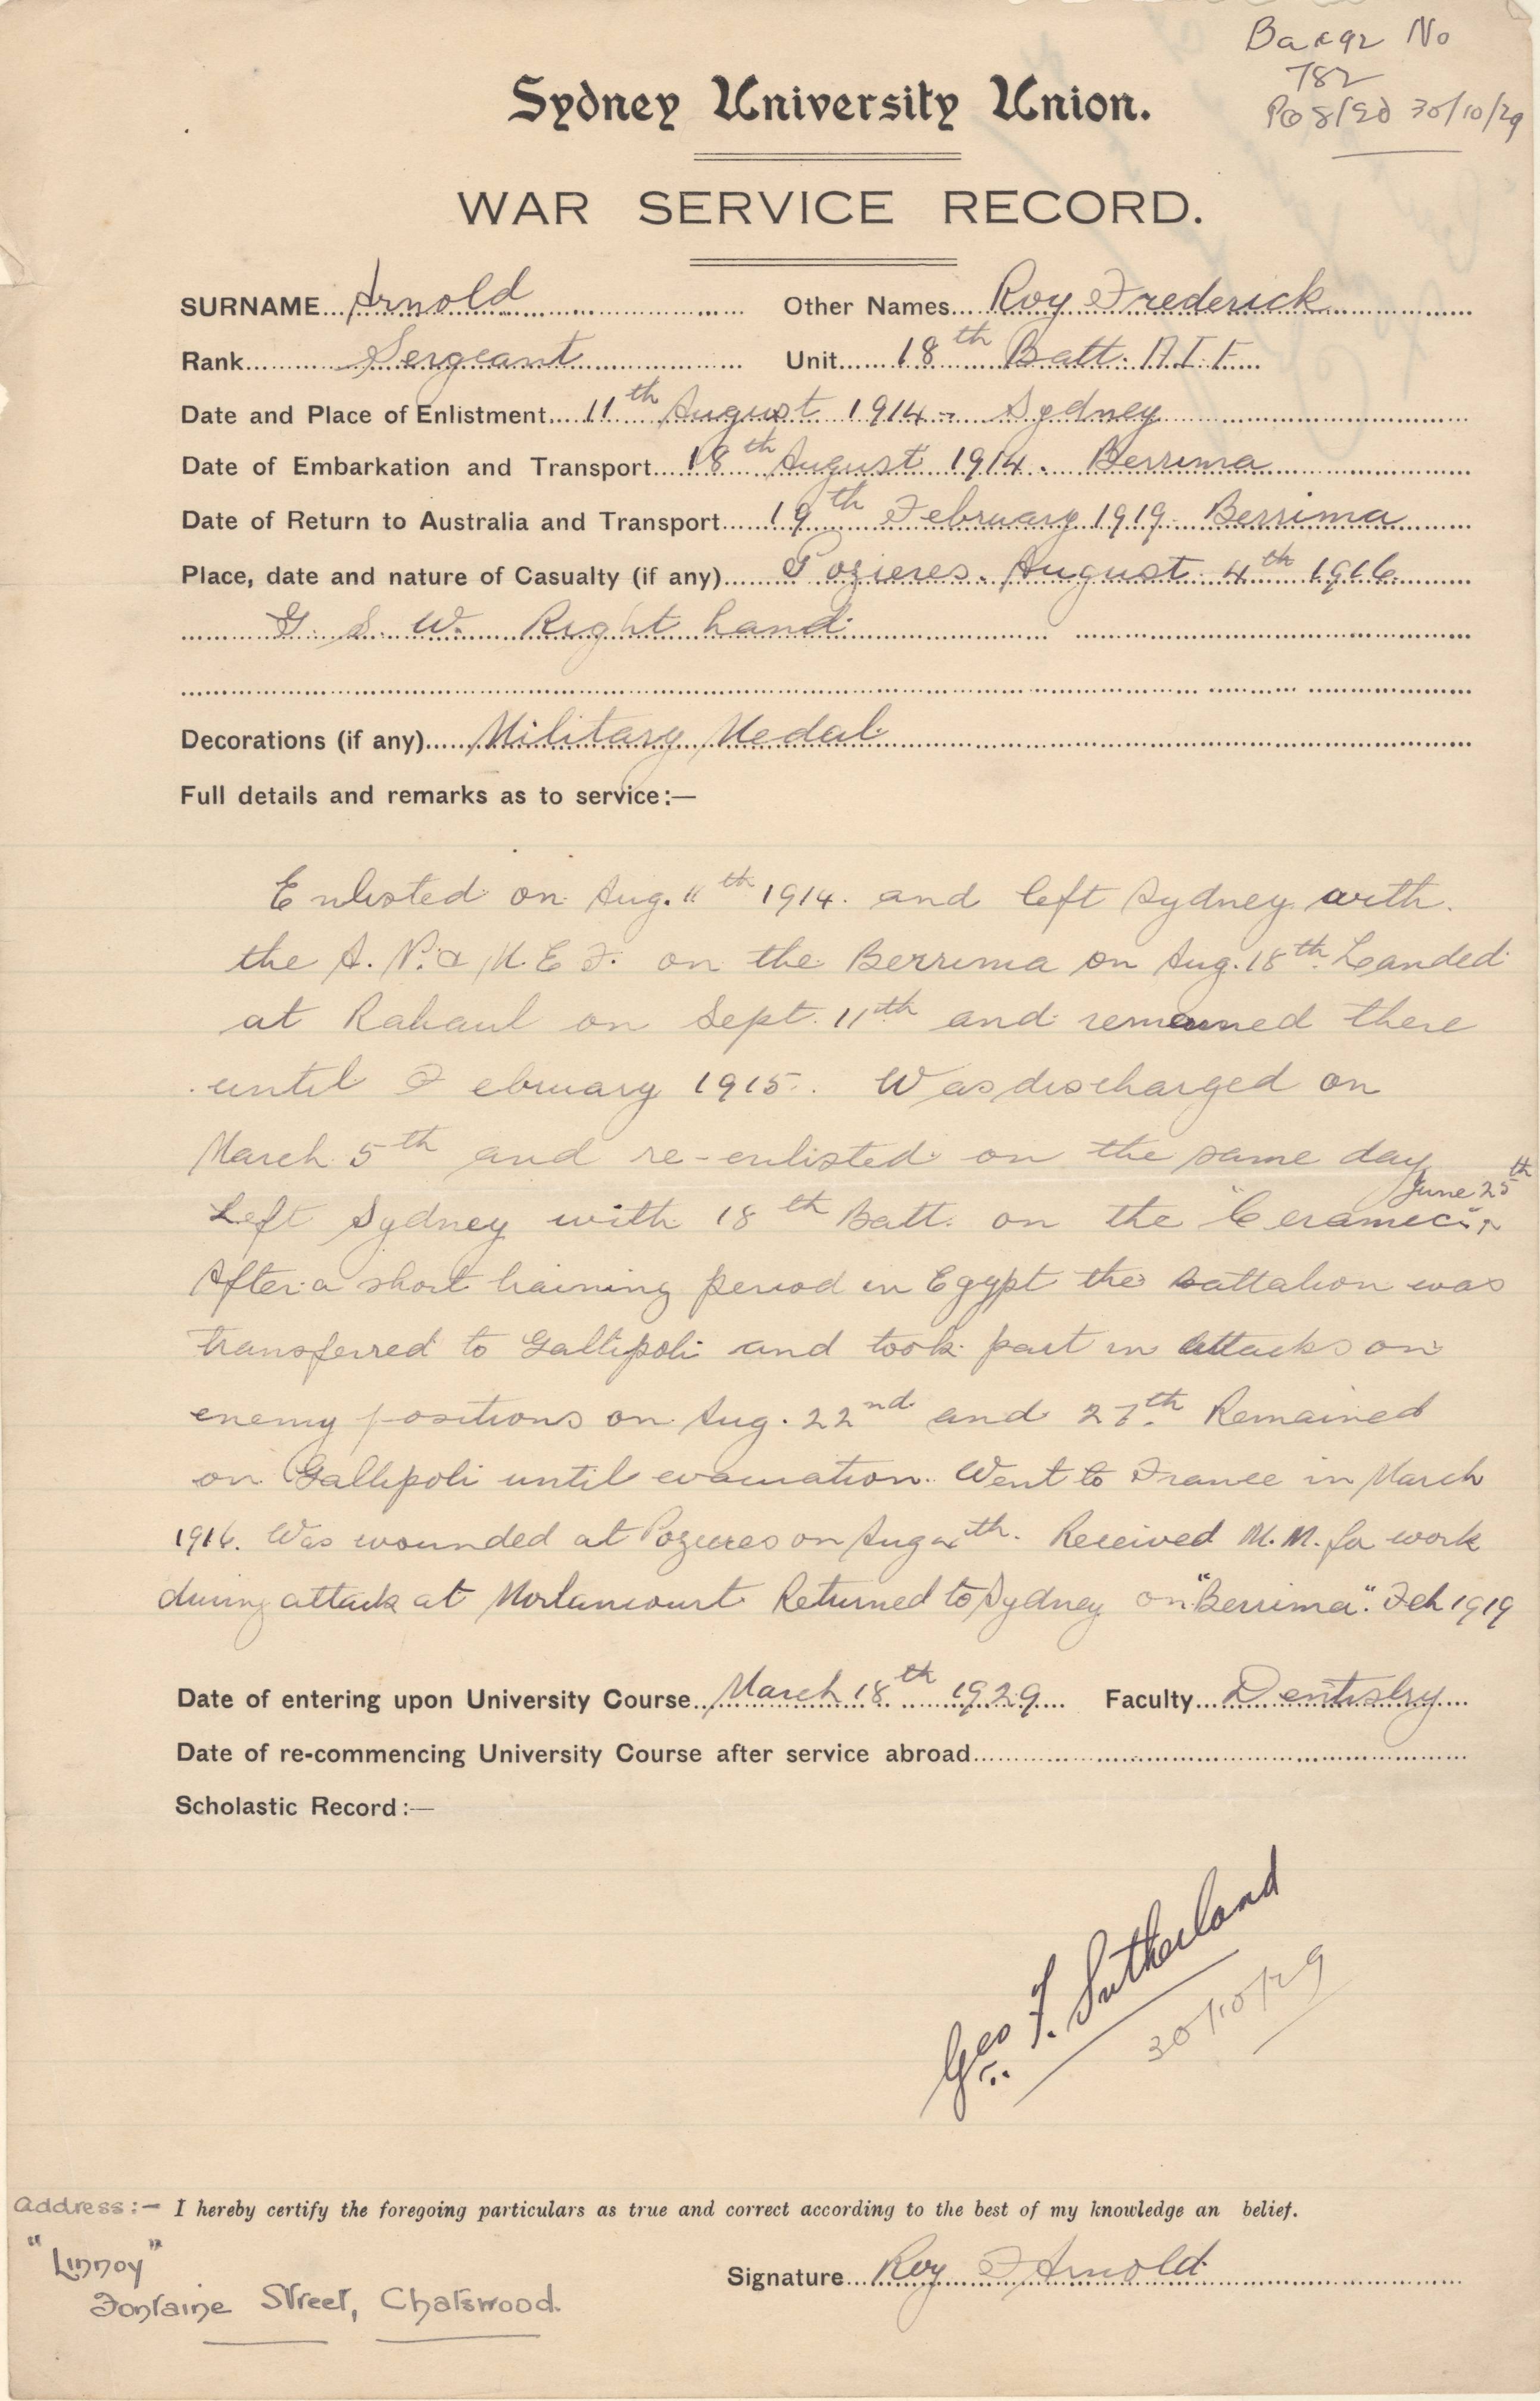 Badge No
782
Posted 30/10/29
Sydney University Union.
WAR SERVICE RECORD.
SURNAME Arnold Other Names Roy Frederick
Rank Sergeant Unit 18th Batt. A.I.F.
Date and Place of Enlistment 11th August 1914 - Sydney
Date of Embarkation and Transport 18th August 1914. Berrima
Date of Return to Australia and Transport 19th February 1919 Berrima
Place, date and nature of Casualty (if any) Pozieres. August 4th 1916
G. S. W. Right hand
Decorations (if any) Military Medal
Full details and remarks as to service:—
Enlisted on Aug. 11th 1914. and left Sydney with
the A. N. & M. E F. on the Berrima on Aug. 18th. Landed
at Rabaul on Sept. 11th and remained there
until February 1915. Was discharged on
March 5th and re-enlisted on the same day
June 25th
Left Sydney with 18th Batt. on the "Ceramic"
After a short training period in Egypt the battalion was
transferred to Gallipoli and took part in attacks on
enemy positions on Aug. 22nd and 27th. Remained
on Gallipoli until evacuation. Went to France in March
1916. Was wounded at Pozieres on Aug 4th. Received M. M. for work
during attack at Morlancourt Returned to Sydney on "Berrima". Feb 1919
Date of entering upon University Course March 18th 1929 Faculty Dentistry
Date of re-commencing University Course after service abroad
Scholastic Record:—
Geo. F. Sutherland
30/10/29
Address:- I hereby certify the foregoing particulars as true and correct according to the best of my knowledge an belief.
"Linnoy"
Signature Roy F Arnold
Fontaine Street, Chatswood.